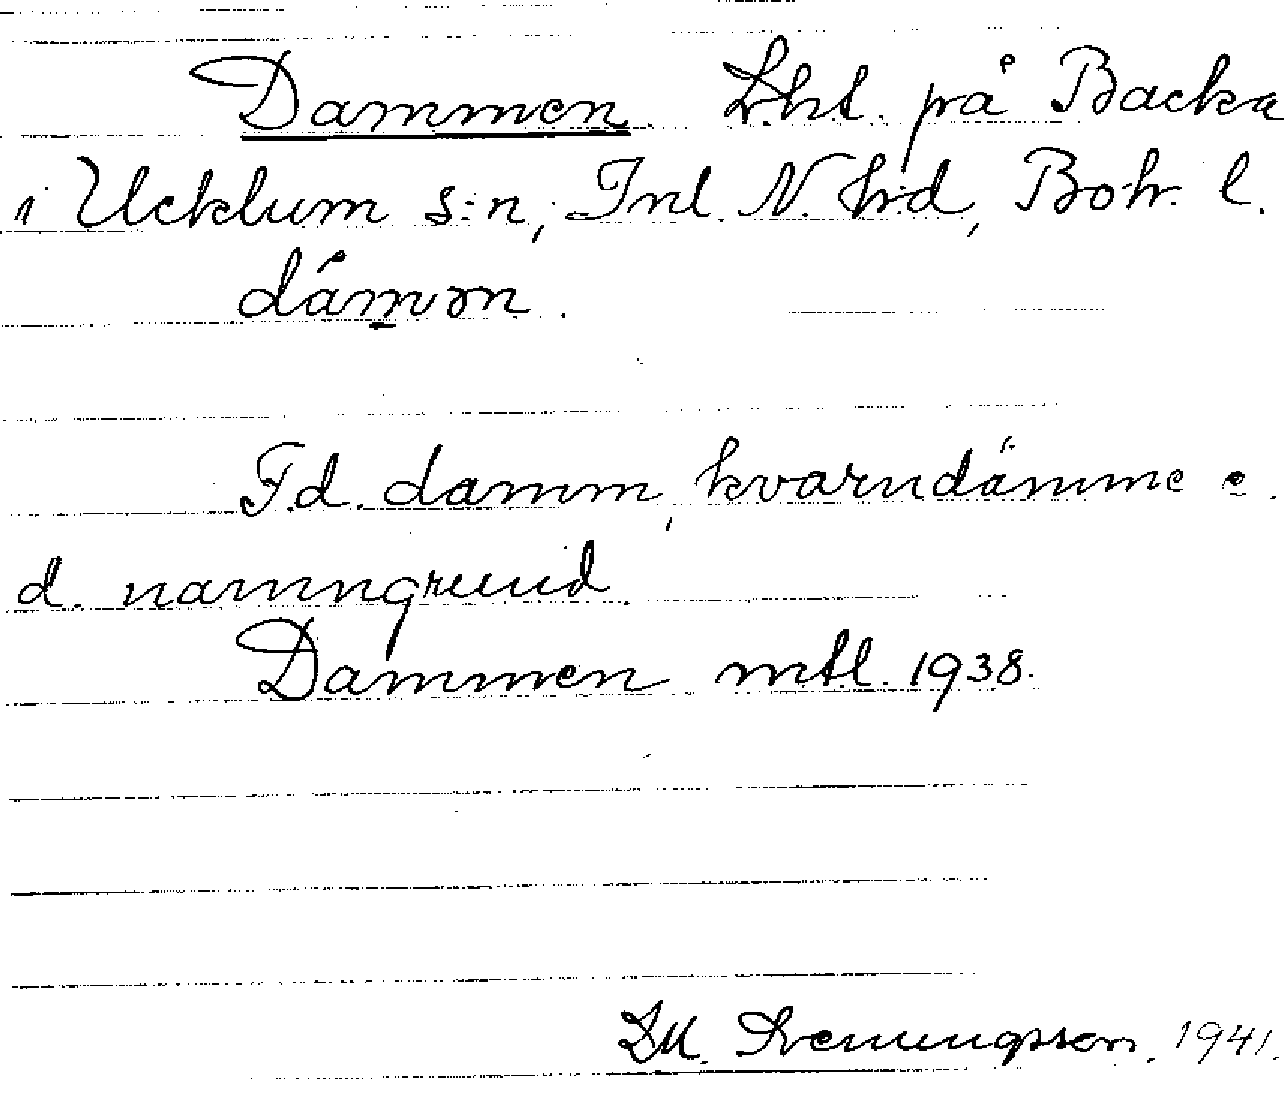 Dammen. Lht. på Backa
i Ucklum s:n, Inl. N. hrd, Boh. l.
dámən.
F.d. damm, kvarndämme e.
d. namngrund.
Dammen mtl. 1938.
1941.